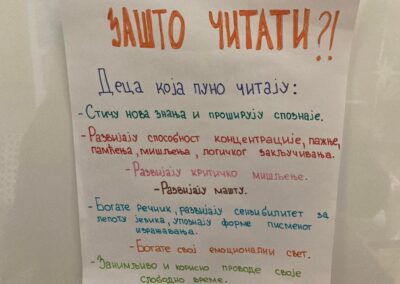 ЗАШТО ЧИТАТИ?!
Деца која пуно читају:
- Стичу нова знања и проширују спознаје.
- Развијају способност концентрације, пажње,
памћења, мишљења, логичког закључивања.
- Развијају критичко мишљење.
- Развијају машту.
- Богате речник, развијају сензибилитет за
лепоту језика, упознају форме писменог
изражавања.
- Богате свој емоционални свет.
- Занимљиво и корисно проводе своје
слободно време.